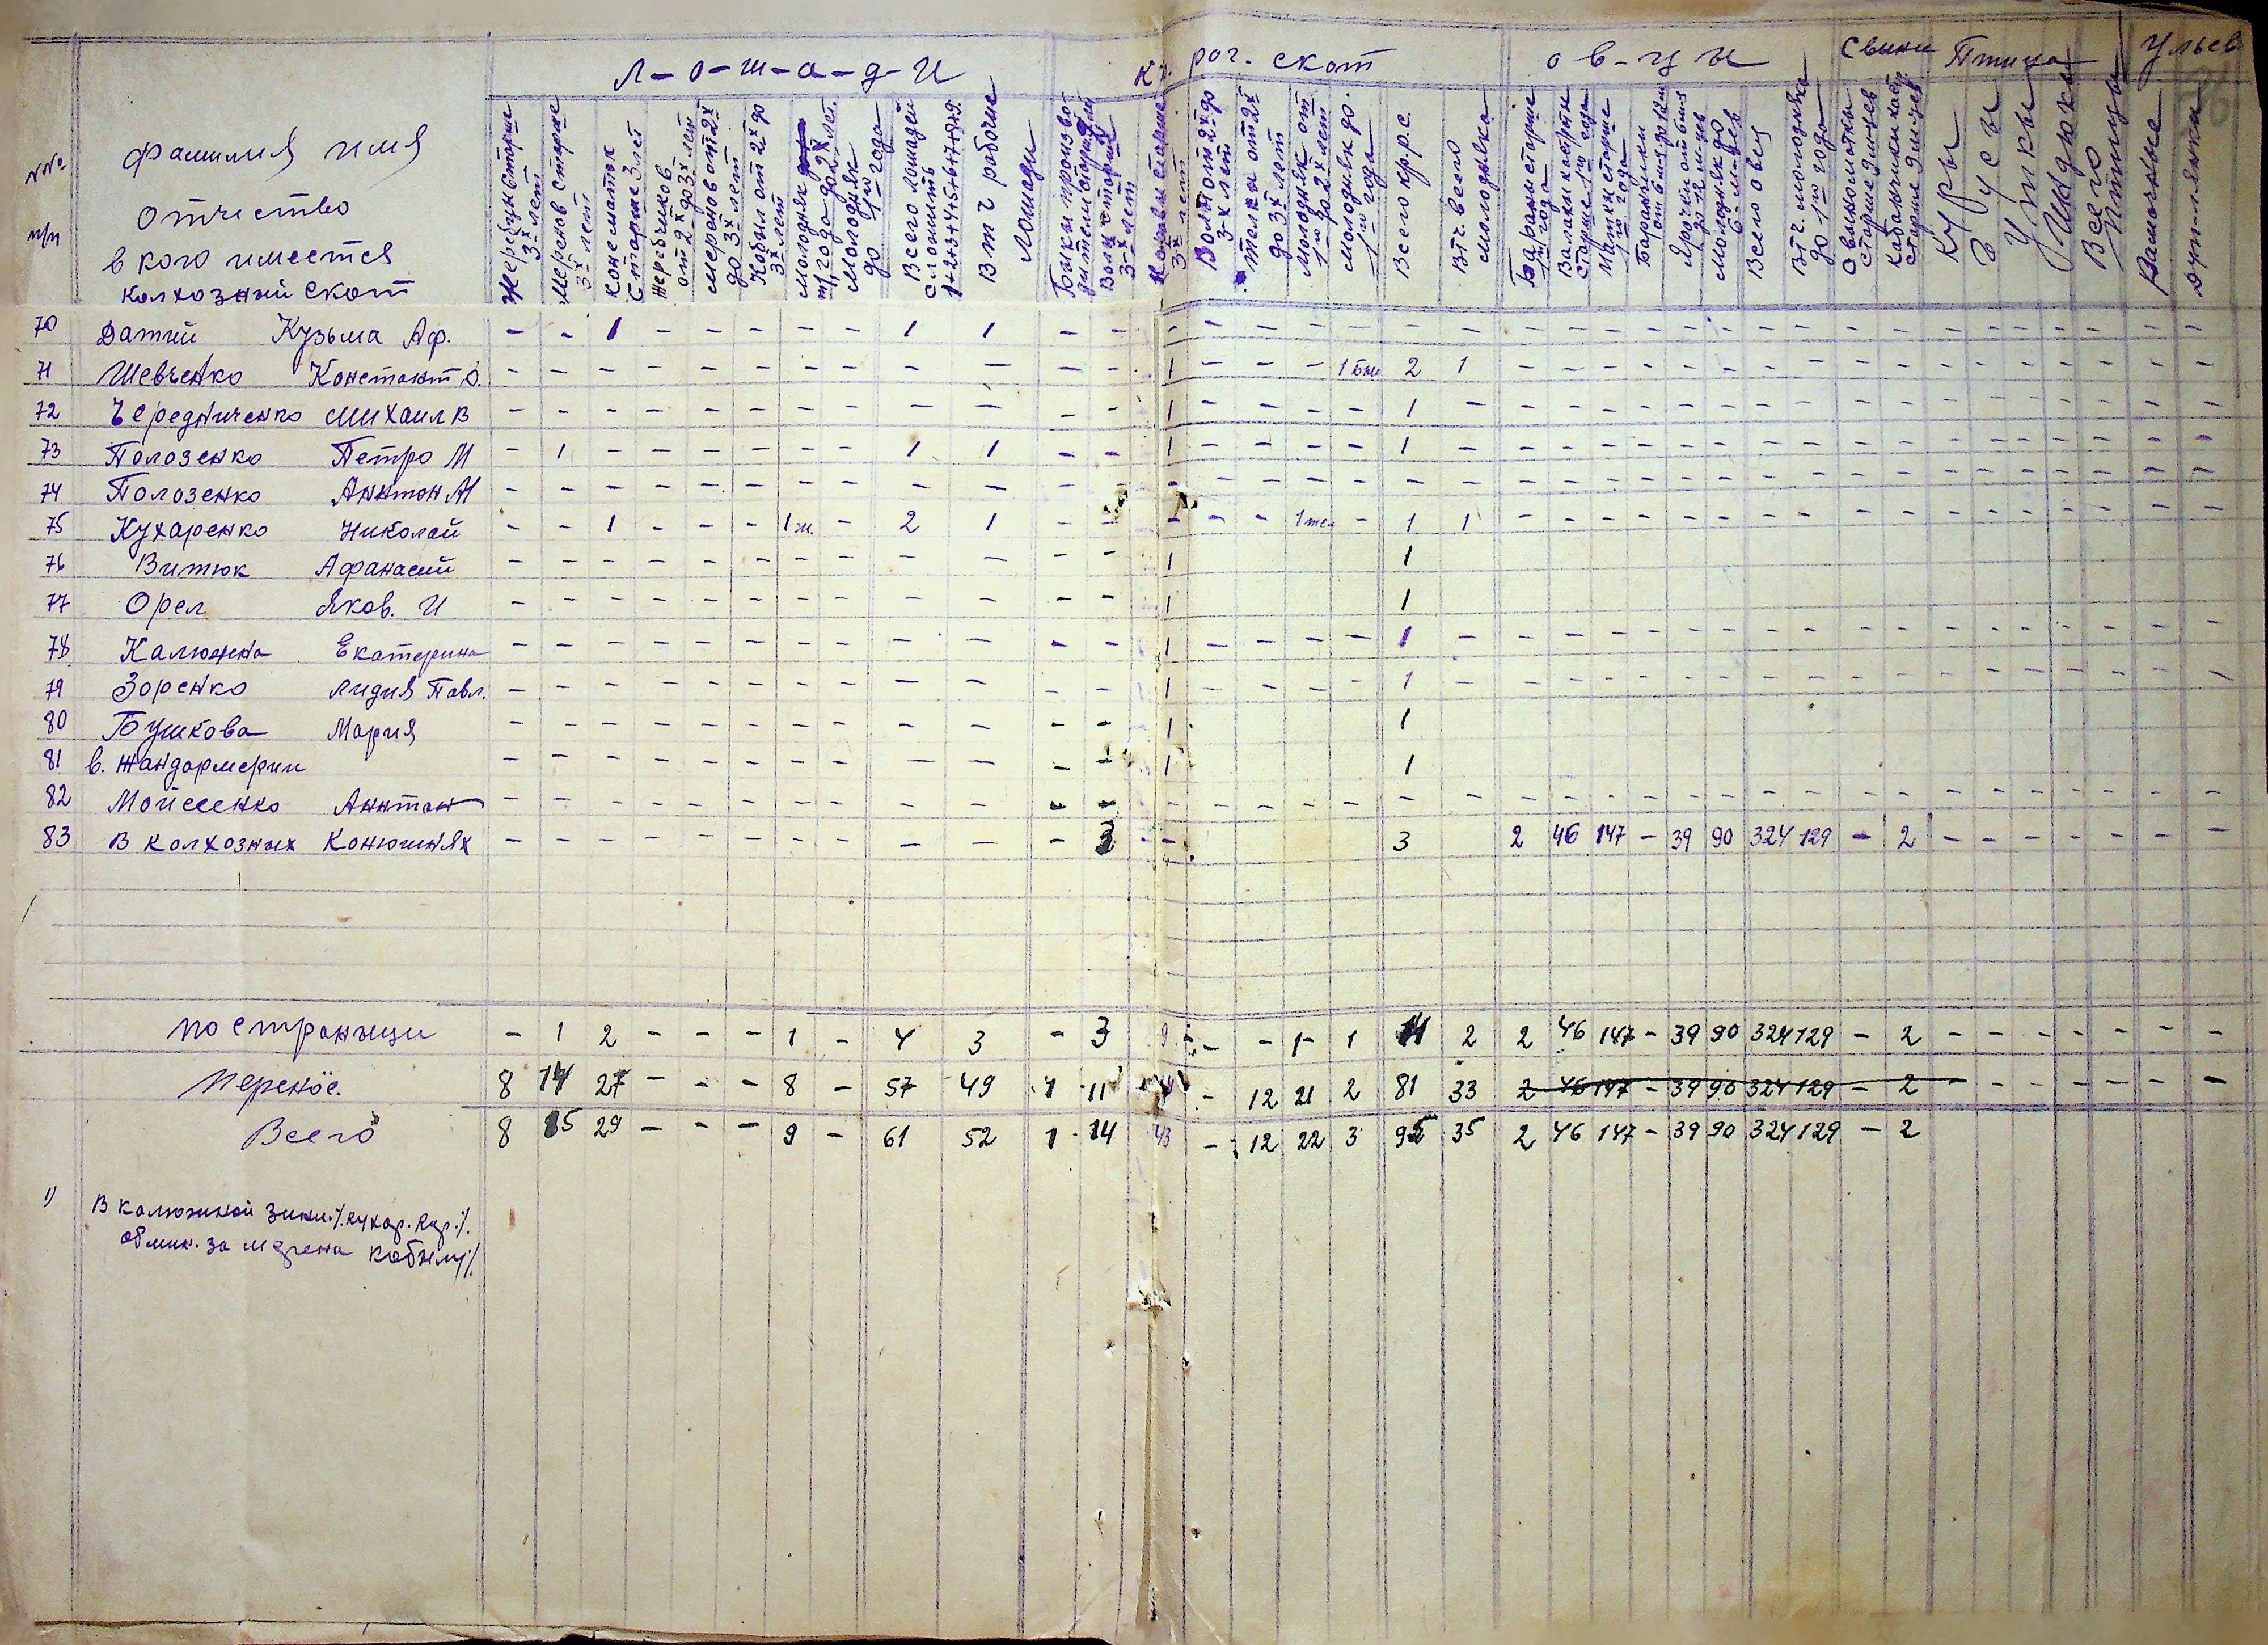 Л-о-ш-а-д-и Кр. рог. скот о в-ц ы Свиньи Птица Ульев
№№ п/п
Фамилия имя
отчество
в кого имеется
колхозний скот
Жеребцы старше 3х лет
Меренов старше 3х лет
Конематок старше 3 лет
Жеребчиков от 2х до 3х лет
Меренов от 2х до 3х лет
Кобыл от 2х до 3х лет
Молодняк
Молодняк до 1го года
Всего лошадей сложить 1+2+3+4+5+6+7+8
В т ч рабочие лошади
Быки
Волы старше 3-х лет
Коровы старше 3х лет
Волы от 2х до 3-х лет
Телки от 2х до 3х лет
Молодняк от 1го до 2х лет
Молодняк до 1го года
Всего кр.р.с.
Втч всего молодняка
Бараны старше 1го года
Валахи кастрты старше 1го года
Матки старше 1го года
Баранчики
Ярочки от 6 м-в до 12 м-цев
Молодняк до 6-м-цев
Всего овец
Втч. молодняка до 1го года
Свиноматки старше 9 м-цев
Кабанчики
Куры
Гуси
Утки
Индюки
Всего птицы
Рамочные
70 Датий Кузьма Аф. - - 1 - - - - - 1 1 - - - - - - - - - - - - - - - - - - - - - - - - - -
71 Шевченко Констант О. - - - - - - - - - - - - 1 - - - 1 бж. 2 1 - - - - - - - - - - - - - - - - -
72 Чередниченко Михаил В - - - - - - - - - - - - 1 - - - - 1 - - - - - - - - - - - - - - - - - -
73 Полозенко Петро М - 1 - - - - - - 1 1 - - 1 - - - - 1 - - - - - - - - - - - - - - - - - -
74 Полозенко Аннтон М - - - - - - - - - - - - - - - - - - - - - - - - - - - - - - - - - - - -
75 Кухаренко Николай - - 1 - - - 1 ж. - 2 1 - - - - - 1 тел - 1 1 - - - - - - - - - - - - - - - - -
76 Витюк Афанасий - - - - - - - - - - - - 1 1
77 Орел Яков. И - - - - - - - - - - - - 1 1
78 Калюжна Екатерина - - - - - - - - - - - 1 - - - - 1 - - - - - - - - - - - - - - - - - -
79 Зоренко Лидия Павл. - - - - - - - - - - - - 1 - - - - 1 - - - - - - - - - - - - - - - - - -
80 Бушкова Мария - - - - - - - - - - - - 1 1
81 в. жандармерии - - - - - - - - - - - - 1 1
82 Мойсеенко Аннтон - - - - - - - - - - - - - - - - - - - - - - - - - - - - - - - - - - - -
83 В колхозних Конюшнях - - - - - - - - - - - 3 - 3 2 46 147 - 39 90 324 129 - 2 - - - - - - -
по страници - 1 2 - - - 1 - 4 3 - 3 9 - - 1 - 1 14 2 2 46 147 - 39 90 324 129 - 2 - - - - - - -
Перенос. 8 14 27 - - - 8 - 57 49 1 11 - 12 21 2 81 33 2 46 147 - 39 90 324 129 - 2 - - - - - - -
Всего 8 15 29 - - - 9 - 61 52 1 14 43 - 12 22 3 95 35 2 46 147 - 39 90 324 129 - 2
1) В калюжной Зини
за мерена кобилу